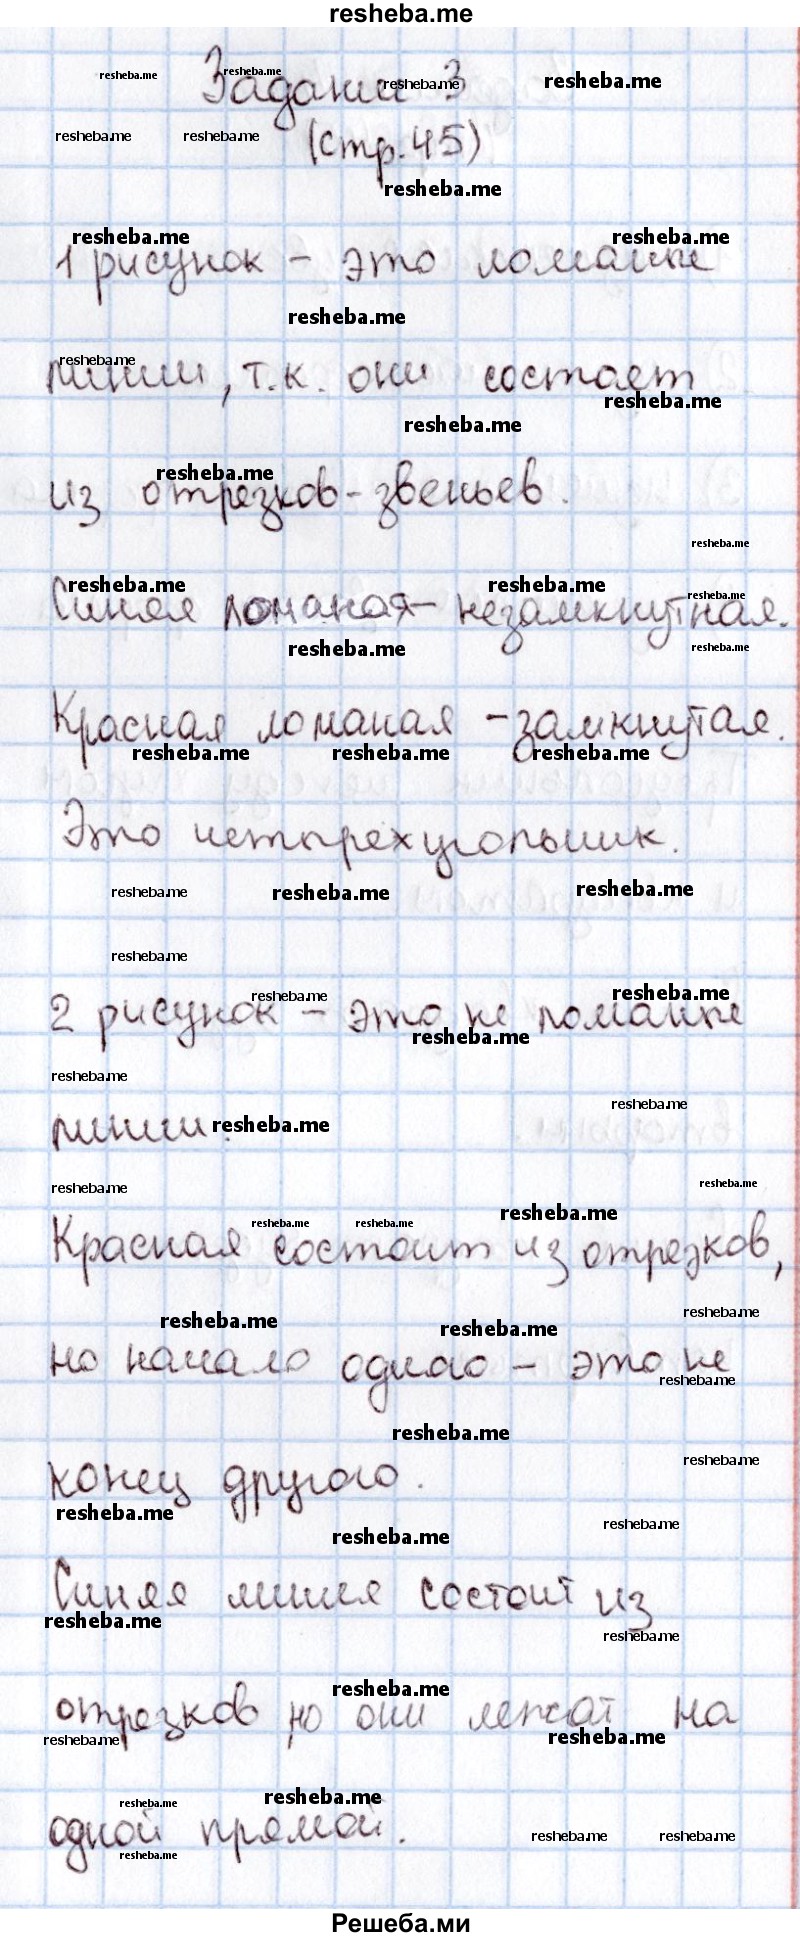 resheba.me
Задании 3
(стр.45)
1 рисунок - это ломаные
линии, т.к. они состоет
из отрезков-звеньев.
Синяя ломаная - незамкнутная.
Красная ломаная - замкнутая.
Это четырехугольник.
2 рисунок - это не ломаные
линии.
Красная состоит из отрезков,
но начало одного - это не
конец другого.
Синяя линия состоит из
отрезков но они лежат на
одной прямой.
Решеба.ми